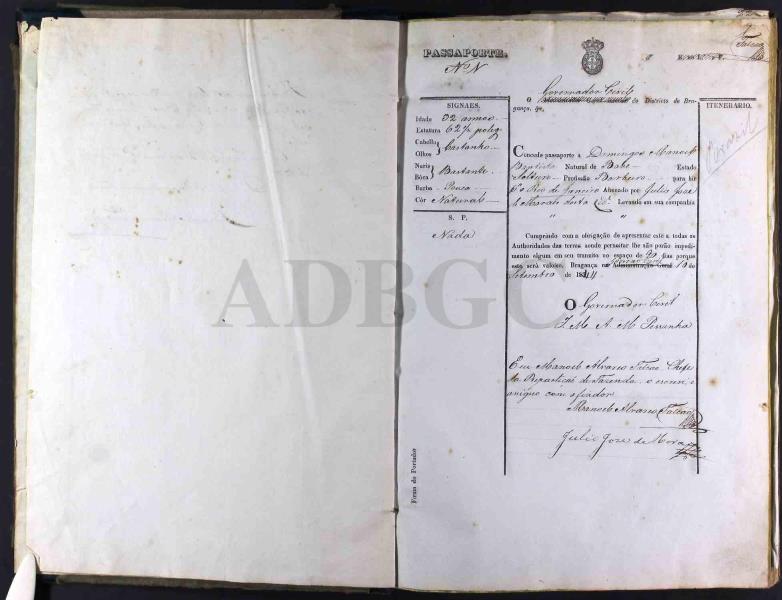 PASSAPORTE.
N.º N
Falcao
SIGNAES.
Idade 32 annos
Estatura 62½ poleg
Cabello
Olhos } Castanho
Nariz
Bôca } Bastante
Barba Pouca
Côr Natural
S. P.
Nada
Governador Civil
O do Districto de Bragança, &c.
Concede passaporte a Domingos Manoel
Baptista Natural de Babe Estado
Solteiro Profissão Barbeiro para hir
Rio de Janeiro Abonado por Julio Jose
de Moraes Levando em sua companhia
" "
Cumprindo com a obrigação de apresentar este a todas as
Authoridades das terras aonde pernoitar lhe não porão impedimento
algum em seu transito no espaço de dias porque
este será valioso. Bragança na Administração Geral 10 de
Setembro de 1844
O Governador Civil
J. M. A. M.
Eu Manoel Alvares Falcao Chefe
da Repartiçaõ de Fazenda o escrevi, e
assigno com o fiador
Manoel Alvares Falcao
Julio Jose de Moraes
ITENERARIO.
Brazil
Firma do Portador
ADBGC